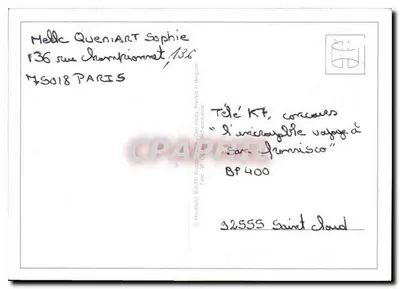 Melle QUENIART Sophie
136 rue Championnet, 136
75018 PARIS
Télé K7, concours
"l'incroyable voyage à
San Francisco"
BP 400
92555 Saint Cloud
CPAPERT